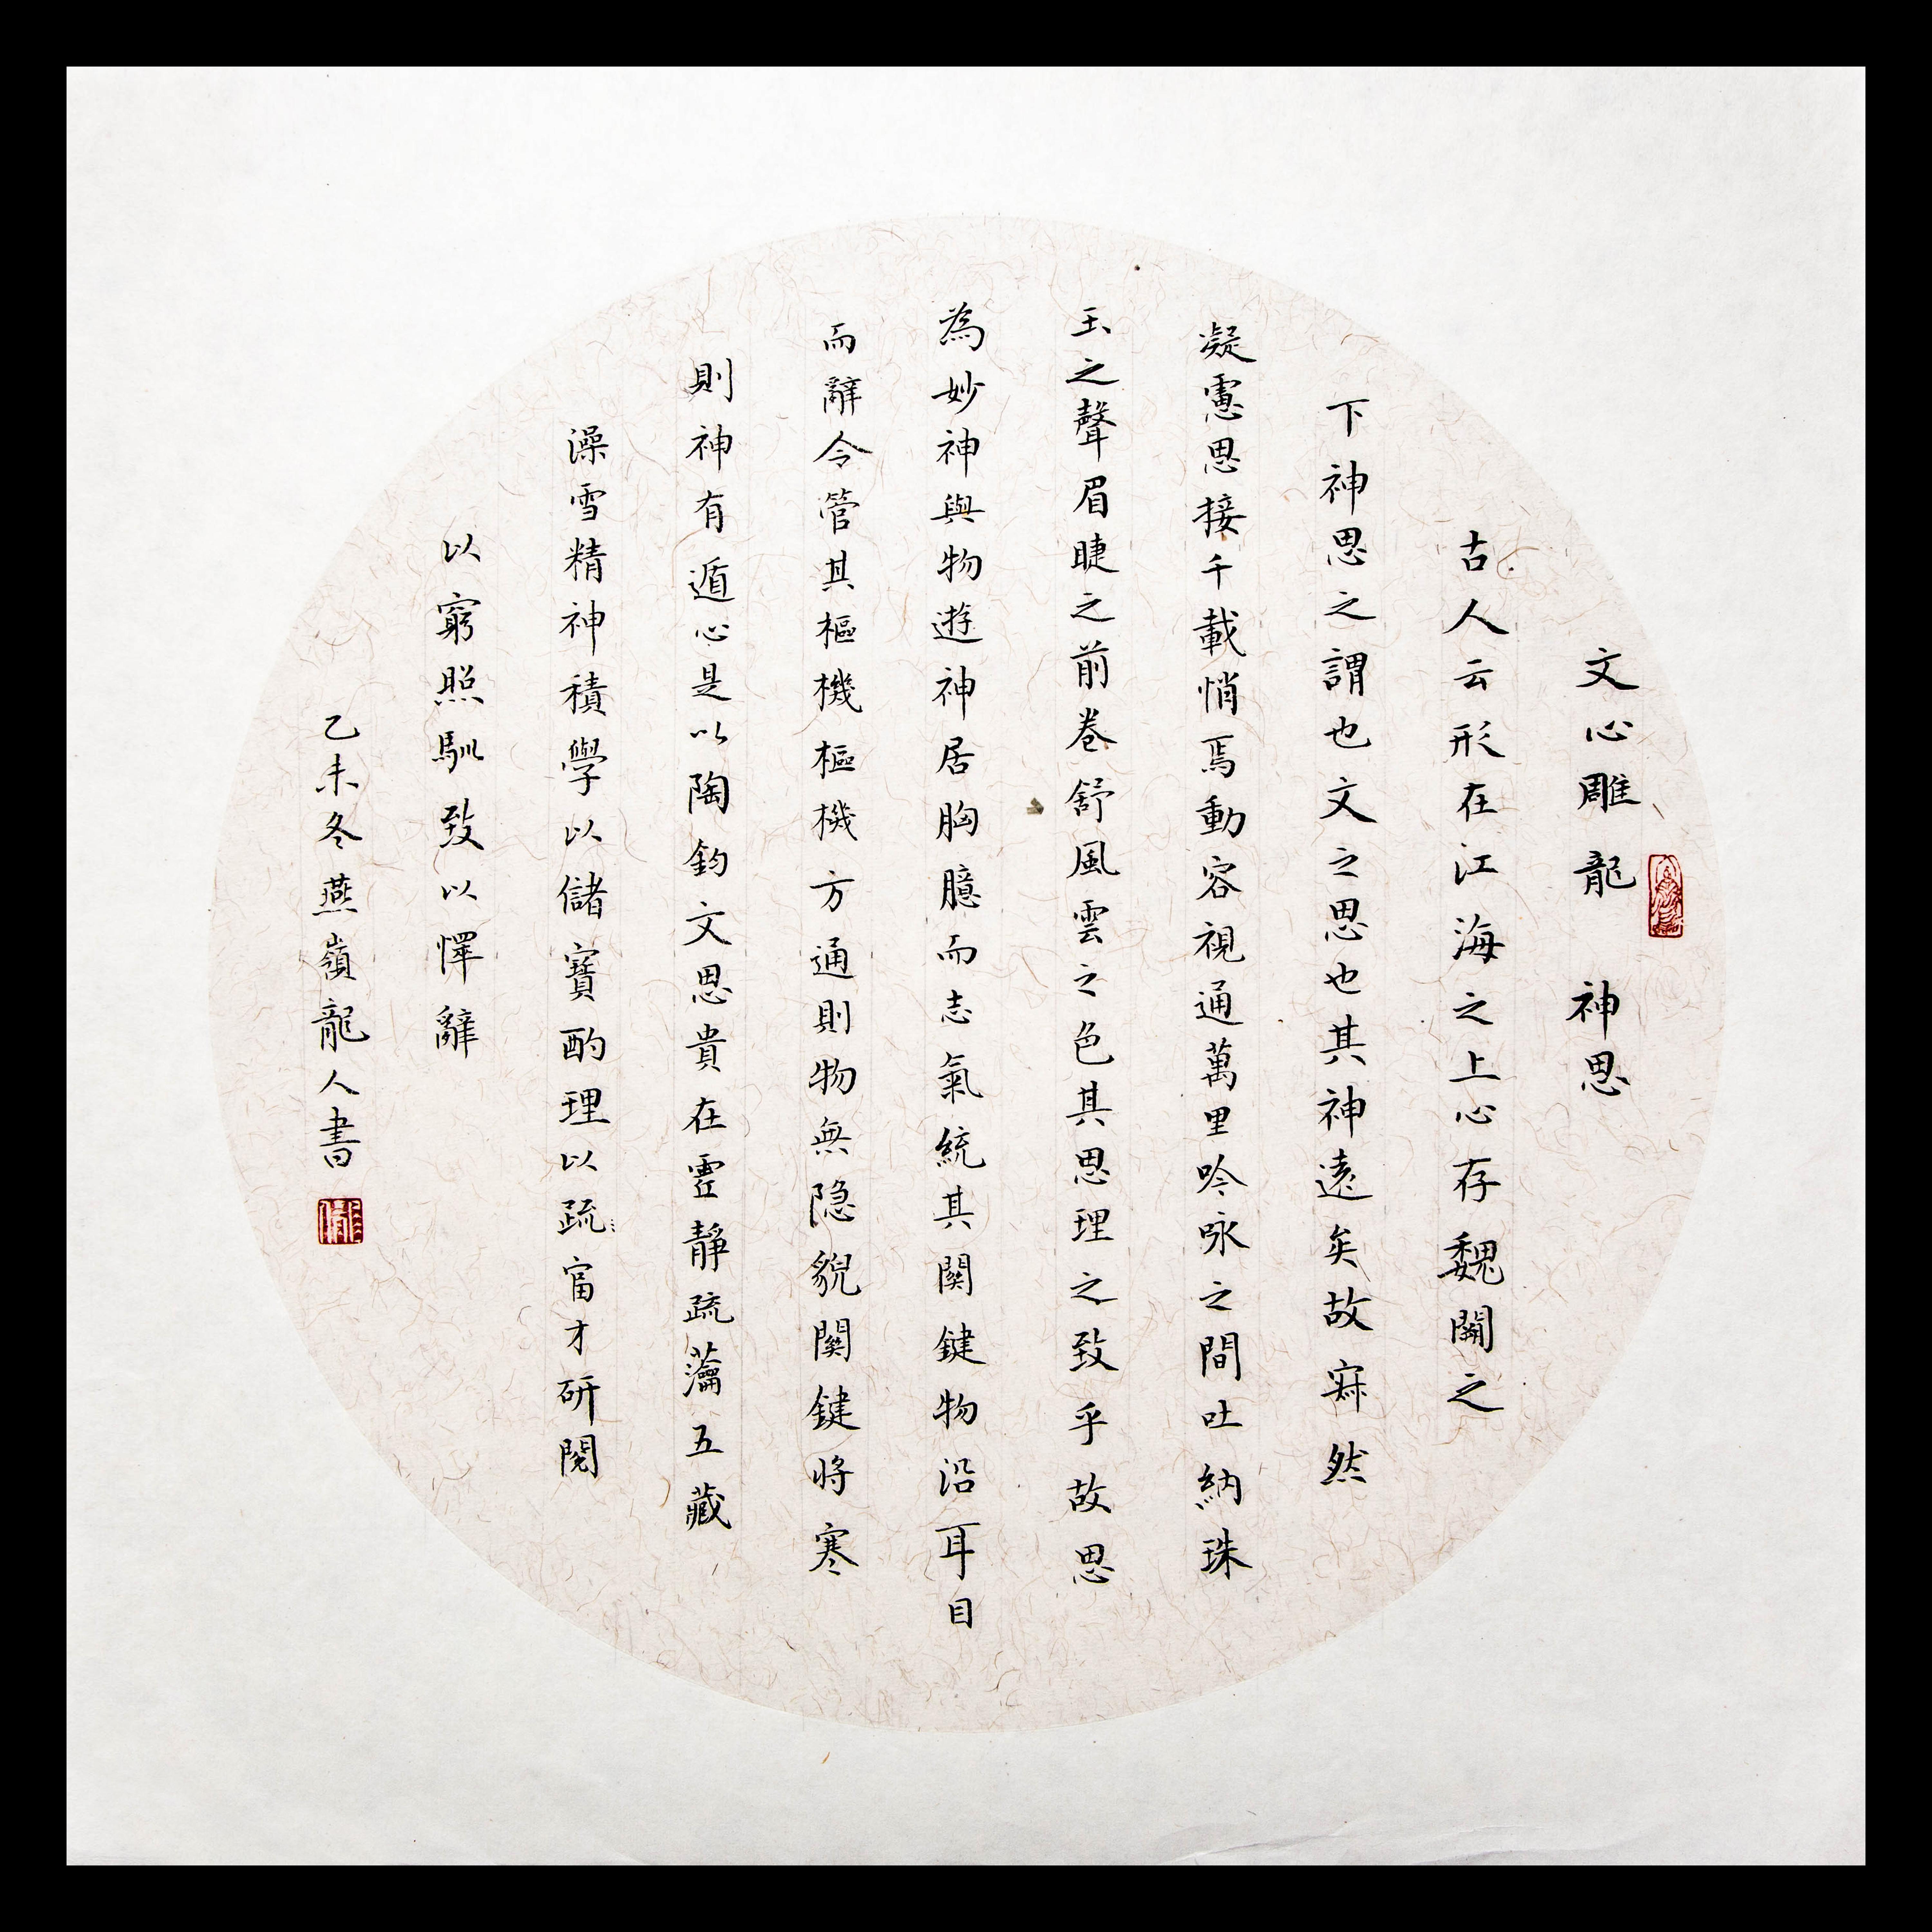 文心雕龍 神思
古人云形在江海之上心存魏闕之
下神思之謂也文之思也其神遠矣故寂然
凝慮思接千載悄焉動容視通萬里吟咏之間吐納珠
玉之聲眉睫之前卷舒風雲之色其思理之致乎故思
為妙神與物遊神居胸臆而志氣統其關鍵物沿耳目
而辭令管其樞機樞機方通則物無隐貌關鍵將塞
則神有遁心是以陶鈞文思貴在虛靜疏瀹五藏
澡雪精神積學以儲寶酌理以疏富才研閱
以窮照馴致以懌辭
乙未冬燕嶺龍人書